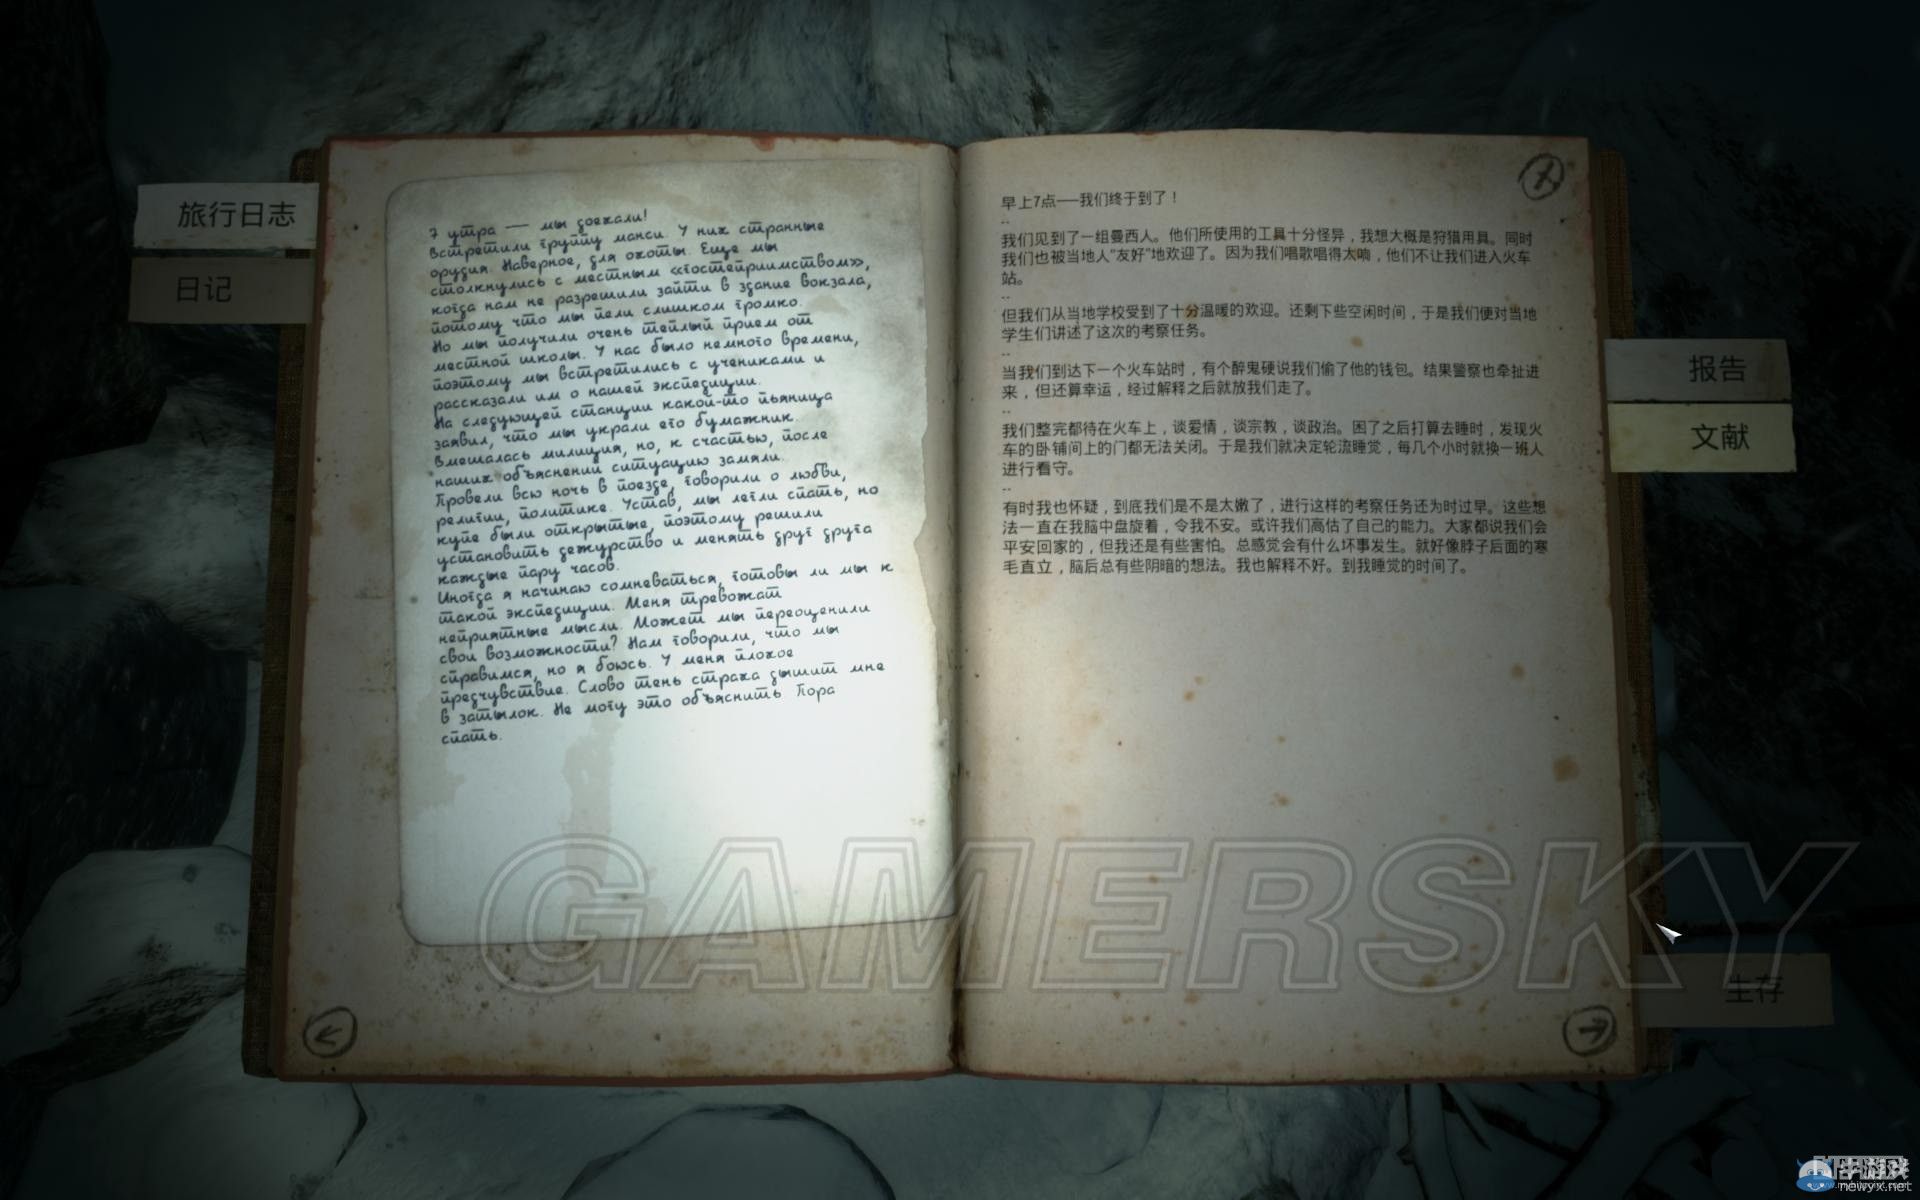 旅行日志
日记
7 утра — мы доехали!
Встретили группу манси. У них странные
орудия. Наверное, для охоты. Еще мы
столкнулись с местным «гостеприимством»,
когда нам не разрешили зайти в здание вокзала,
потому что мы пели слишком громко.
Но мы получили очень теплый прием от
местной школы. У нас было немного времени,
поэтому мы встретились с учениками и
рассказали им о нашей экспедиции.
На следующей станции какой-то пьяница
заявил, что мы украли его бумажник.
Вмешалась милиция, но, к счастью, после
наших объяснений ситуацию замяли.
Провели всю ночь в поезде, говорили о любви,
религии, политике. Устав, мы легли спать, но
купе были открытые, поэтому решили
установить дежурство и менять друг друга
каждые пару часов.
Иногда я начинаю сомневаться, готовы ли мы к
такой экспедиции. Меня тревожат
неприятные мысли. Может мы переоценили
свои возможности? Нам говорили, что мы
справимся, но я боюсь. У меня плохое
предчувствие. Слово тень страха дышит мне
в затылок. Не могу это объяснить. Пора
спать.
早上7点——我们终于到了！
--
我们见到了一组曼西人。他们所使用的工具十分怪异，我想大概是狩猎用具。同时
我们也被当地人“友好”地欢迎了。因为我们唱歌唱得太响，他们不让我们进入火车
站。
--
但我们从当地学校受到了十分温暖的欢迎。还剩下些空闲时间，于是我们便对当地
学生们讲述了这次的考察任务。
--
当我们到达下一个火车站时，有个醉鬼硬说我们偷了他的钱包。结果警察也牵扯进
来，但还算幸运，经过解释之后就放我们走了。
--
我们整完都待在火车上，谈爱情，谈宗教，谈政治。困了之后打算去睡时，发现火
车的卧铺间上的门都无法关闭。于是我们就决定轮流睡觉，每几个小时就换一班人
进行看守。
--
有时我也怀疑，到底我们是不是太嫩了，进行这样的考察任务还为时过早。这些想
法一直在我脑中盘旋着，令我不安。或许我们高估了自己的能力。大家都说我们会
平安回家的，但我还是有些害怕。总感觉会有什么坏事发生。就好像脖子后面的寒
毛直立，脑后总有些阴暗的想法。我也解释不好。到我睡觉的时间了。
报告
文献
生存
GAMERSKY
newyx.net